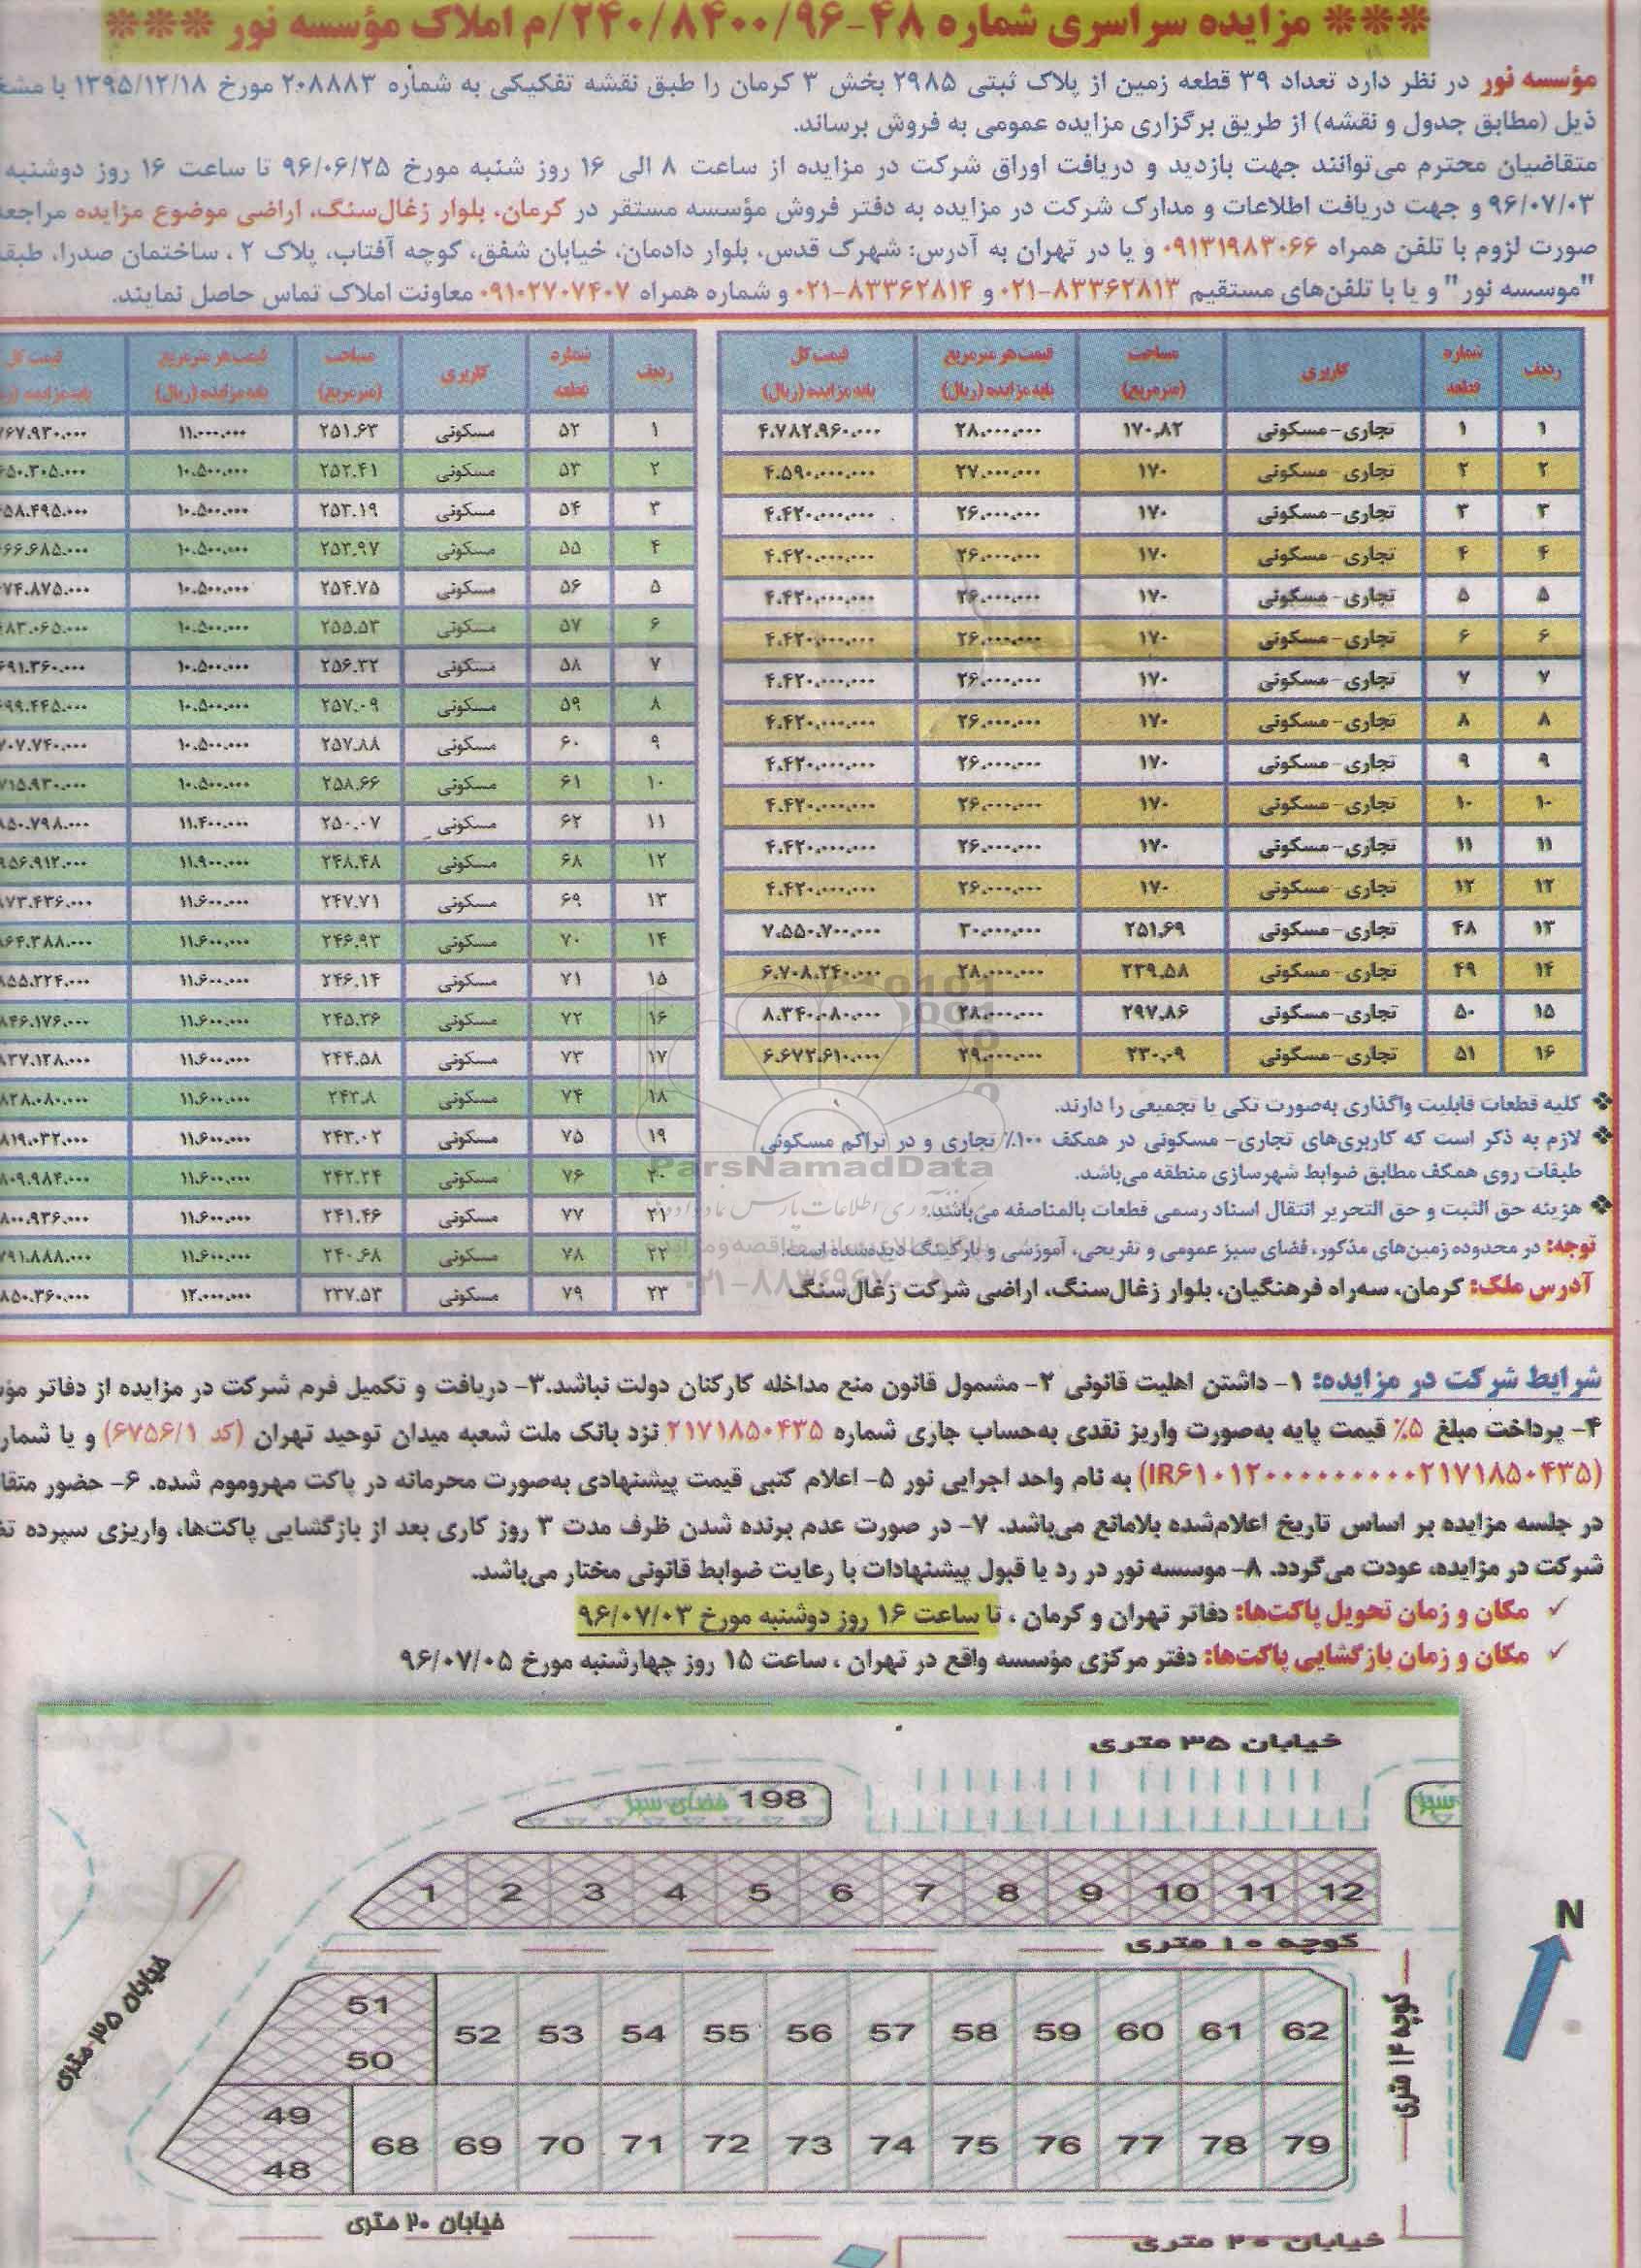 *** مزایده سراسری شماره ۴۸-۲۴۰/۸۴۰۰/۹۶/م املاک مؤسسه نور ***
مؤسسه نور در نظر دارد تعداد ۳۹ قطعه زمین از پلاک ثبتی ۲۹۸۵ بخش ۳ کرمان را طبق نقشه تفکیکی به شماره ۲۰۸۸۸۳ مورخ ۱۳۹۵/۱۲/۱۸ با
ذیل (مطابق جدول و نقشه) از طریق برگزاری مزایده عمومی به فروش برساند.
متقاضیان محترم می‌توانند جهت بازدید و دریافت اوراق شرکت در مزایده از ساعت ۸ الی ۱۶ روز شنبه مورخ ۹۶/۰۶/۲۵ تا ساعت ۱۶ روز دوشنبه
۹۶/۰۷/۰۳ و جهت دریافت اطلاعات و مدارک شرکت در مزایده به دفتر فروش مؤسسه مستقر در کرمان، بلوار زغال‌سنگ، اراضی موضوع مزایده
صورت لزوم با تلفن همراه ۰۹۱۳۱۹۸۳۰۶۶ و یا در تهران به آدرس: شهرک قدس، بلوار دادمان، خیابان شفق، کوچه آفتاب، پلاک ۲ ، ساختمان صدرا،
"موسسه نور" و یا با تلفن‌های مستقیم ۸۳۳۶۲۸۱۳-۰۲۱ و ۸۳۳۶۲۸۱۴-۰۲۱ و شماره همراه ۰۹۱۰۲۷۰۷۴۰۷ معاونت املاک تماس حاصل نمایند.
ردیف شماره قطعه کاربری مساحت (مترمربع) قیمت هر مترمربع پایه مزایده (ریال) قیمت کل پایه مزایده (ریال)
۱ ۱ تجاری-مسکونی ۱۷۰.۸۲ ۲۸.۰۰۰.۰۰۰ ۴.۷۸۲.۹۶۰.۰۰۰
۲ ۲ تجاری-مسکونی ۱۷۰ ۲۷.۰۰۰.۰۰۰ ۴.۵۹۰.۰۰۰.۰۰۰
۳ ۳ تجاری-مسکونی ۱۷۰ ۲۶.۰۰۰.۰۰۰ ۴.۴۲۰.۰۰۰.۰۰۰
۴ ۴ تجاری-مسکونی ۱۷۰ ۲۶.۰۰۰.۰۰۰ ۴.۴۲۰.۰۰۰.۰۰۰
۵ ۵ تجاری-مسکونی ۱۷۰ ۲۶.۰۰۰.۰۰۰ ۴.۴۲۰.۰۰۰.۰۰۰
۶ ۶ تجاری-مسکونی ۱۷۰ ۲۶.۰۰۰.۰۰۰ ۴.۴۲۰.۰۰۰.۰۰۰
۷ ۷ تجاری-مسکونی ۱۷۰ ۲۶.۰۰۰.۰۰۰ ۴.۴۲۰.۰۰۰.۰۰۰
۸ ۸ تجاری-مسکونی ۱۷۰ ۲۶.۰۰۰.۰۰۰ ۴.۴۲۰.۰۰۰.۰۰۰
۹ ۹ تجاری-مسکونی ۱۷۰ ۲۶.۰۰۰.۰۰۰ ۴.۴۲۰.۰۰۰.۰۰۰
۱۰ ۱۰ تجاری-مسکونی ۱۷۰ ۲۶.۰۰۰.۰۰۰ ۴.۴۲۰.۰۰۰.۰۰۰
۱۱ ۱۱ تجاری-مسکونی ۱۷۰ ۲۶.۰۰۰.۰۰۰ ۴.۴۲۰.۰۰۰.۰۰۰
۱۲ ۱۲ تجاری-مسکونی ۱۷۰ ۲۶.۰۰۰.۰۰۰ ۴.۴۲۰.۰۰۰.۰۰۰
۱۳ ۴۸ تجاری-مسکونی ۲۵۱.۶۹ ۳۰.۰۰۰.۰۰۰ ۷.۵۵۰.۷۰۰.۰۰۰
۱۴ ۴۹ تجاری-مسکونی ۲۳۹.۵۸ ۲۸.۰۰۰.۰۰۰ ۶.۷۰۸.۲۴۰.۰۰۰
۱۵ ۵۰ تجاری-مسکونی ۲۹۷.۸۶ ۲۸.۰۰۰.۰۰۰ ۸.۳۴۰.۰۸۰.۰۰۰
۱۶ ۵۱ تجاری-مسکونی ۲۳۰.۰۹ ۲۹.۰۰۰.۰۰۰ ۶.۶۷۲.۶۱۰.۰۰۰
کلیه قطعات قابلیت واگذاری به‌صورت تکی یا تجمیعی را دارند.
لازم به ذکر است که کاربری‌های تجاری- مسکونی در همکف ۱۰۰٪ تجاری و در تراکم مسکونی
طبقات روی همکف مطابق ضوابط شهرسازی منطقه می‌باشد.
هزینه حق الثبت و حق التحریر انتقال اسناد رسمی قطعات بالمناصفه می‌باشد.
توجه: در محدوده زمین‌های مذکور، فضای سبز عمومی و تفریحی، آموزشی و پارکینگ دیده‌شده است.
آدرس ملک: کرمان، سه‌راه فرهنگیان، بلوار زغال‌سنگ، اراضی شرکت زغال‌سنگ
ردیف شماره قطعه کاربری مساحت (مترمربع) قیمت هر مترمربع پایه مزایده (ریال) قیمت کل
۱ ۵۲ مسکونی ۲۵۱.۶۳ ۱۱.۰۰۰.۰۰۰ ۷۶۷.۹۳۰.۰۰۰
۲ ۵۳ مسکونی ۲۵۲.۴۱ ۱۰.۵۰۰.۰۰۰ ۶۵۰.۳۰۵.۰۰۰
۳ ۵۴ مسکونی ۲۵۳.۱۹ ۱۰.۵۰۰.۰۰۰ ۵۸.۴۹۵.۰۰۰
۴ ۵۵ مسکونی ۲۵۳.۹۷ ۱۰.۵۰۰.۰۰۰ ۶۶.۶۸۵.۰۰۰
۵ ۵۶ مسکونی ۲۵۴.۷۵ ۱۰.۵۰۰.۰۰۰ ۷۴.۸۷۵.۰۰۰
۶ ۵۷ مسکونی ۲۵۵.۵۳ ۱۰.۵۰۰.۰۰۰ ۸۳.۰۶۵.۰۰۰
۷ ۵۸ مسکونی ۲۵۶.۳۲ ۱۰.۵۰۰.۰۰۰ ۶۹۱.۳۶۰.۰۰۰
۸ ۵۹ مسکونی ۲۵۷.۰۹ ۱۰.۵۰۰.۰۰۰ ۶۹۹.۴۴۵.۰۰۰
۹ ۶۰ مسکونی ۲۵۷.۸۸ ۱۰.۵۰۰.۰۰۰ ۷۰۷.۷۴۰.۰۰۰
۱۰ ۶۱ مسکونی ۲۵۸.۶۶ ۱۰.۵۰۰.۰۰۰ ۷۱۵.۹۳۰.۰۰۰
۱۱ ۶۲ مسکونی ۲۵۰.۰۷ ۱۱.۴۰۰.۰۰۰ ۸۵۰.۷۹۸.۰۰۰
۱۲ ۶۸ مسکونی ۲۴۸.۴۸ ۱۱.۹۰۰.۰۰۰ ۹۵۶.۹۱۲.۰۰۰
۱۳ ۶۹ مسکونی ۲۴۷.۷۱ ۱۱.۶۰۰.۰۰۰ ۸۷۳.۴۳۶.۰۰۰
۱۴ ۷۰ مسکونی ۲۴۶.۹۳ ۱۱.۶۰۰.۰۰۰ ۸۶۴.۳۸۸.۰۰۰
۱۵ ۷۱ مسکونی ۲۴۶.۱۴ ۱۱.۶۰۰.۰۰۰ ۸۵۵.۲۲۴.۰۰۰
۱۶ ۷۲ مسکونی ۲۴۵.۳۶ ۱۱.۶۰۰.۰۰۰ ۸۴۶.۱۷۶.۰۰۰
۱۷ ۷۳ مسکونی ۲۴۴.۵۸ ۱۱.۶۰۰.۰۰۰ ۸۳۷.۱۲۸.۰۰۰
۱۸ ۷۴ مسکونی ۲۴۳.۸ ۱۱.۶۰۰.۰۰۰ ۸۲۸.۰۸۰.۰۰۰
۱۹ ۷۵ مسکونی ۲۴۳.۰۲ ۱۱.۶۰۰.۰۰۰ ۸۱۹.۰۳۲.۰۰۰
۲۰ ۷۶ مسکونی ۲۴۲.۲۴ ۱۱.۶۰۰.۰۰۰ ۸۰۹.۹۸۴.۰۰۰
۲۱ ۷۷ مسکونی ۲۴۱.۴۶ ۱۱.۶۰۰.۰۰۰ ۸۰۰.۹۳۶.۰۰۰
۲۲ ۷۸ مسکونی ۲۴۰.۶۸ ۱۱.۶۰۰.۰۰۰ ۷۹۱.۸۸۸.۰۰۰
۲۳ ۷۹ مسکونی ۲۳۷.۵۳ ۱۲.۰۰۰.۰۰۰ ۸۵۰.۳۶۰.۰۰۰
ParsNamadData
۰۲۱-۸۸۳۴۹۶۷۰
شرایط شرکت در مزایده: ۱- داشتن اهلیت قانونی ۲- مشمول قانون منع مداخله کارکنان دولت نباشد.۳- دریافت و تکمیل فرم شرکت در مزایده از دفاتر
۴- پرداخت مبلغ ۵٪ قیمت پایه به‌صورت واریز نقدی به‌حساب جاری شماره ۲۱۷۱۸۵۰۴۳۵ نزد بانک ملت شعبه میدان توحید تهران (کد ۶۷۵۶/۱) و یا
(IR۶۱۰۱۲۰۰۰۰۰۰۰۰۰۰۲۱۷۱۸۵۰۴۳۵) به نام واحد اجرایی نور ۵- اعلام کتبی قیمت پیشنهادی به‌صورت محرمانه در پاکت مهروموم شده. ۶- حضور
در جلسه مزایده بر اساس تاریخ اعلام‌شده بلامانع می‌باشد. ۷- در صورت عدم برنده شدن ظرف مدت ۳ روز کاری بعد از بازگشایی پاکت‌ها، واریزی سپرده
شرکت در مزایده، عودت می‌گردد. ۸- موسسه نور در رد یا قبول پیشنهادات با رعایت ضوابط قانونی مختار می‌باشد.
✓ مکان و زمان تحویل پاکت‌ها: دفاتر تهران و کرمان ، تا ساعت ۱۶ روز دوشنبه مورخ ۹۶/۰۷/۰۳
✓ مکان و زمان بازگشایی پاکت‌ها: دفتر مرکزی مؤسسه واقع در تهران ، ساعت ۱۵ روز چهارشنبه مورخ ۹۶/۰۷/۰۵
خیابان ۳۵ متری
198 فضای سبز
سبز
1 2 3 4 5 6 7 8 9 10 11 12
N
کوچه ۱۰ متری
خیابان ۳۵ متری
51
50
52 53 54 55 56 57 58 59 60 61 62
کوچه ۱۴ متری
49
48
68 69 70 71 72 73 74 75 76 77 78 79
خیابان ۲۰ متری
خیابان ۲۰ متری